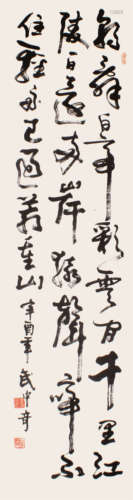 朝辞白帝彩云间千里江
陵一日还两岸猿声啼不
住轻舟已过万重山
辛酉年武中奇